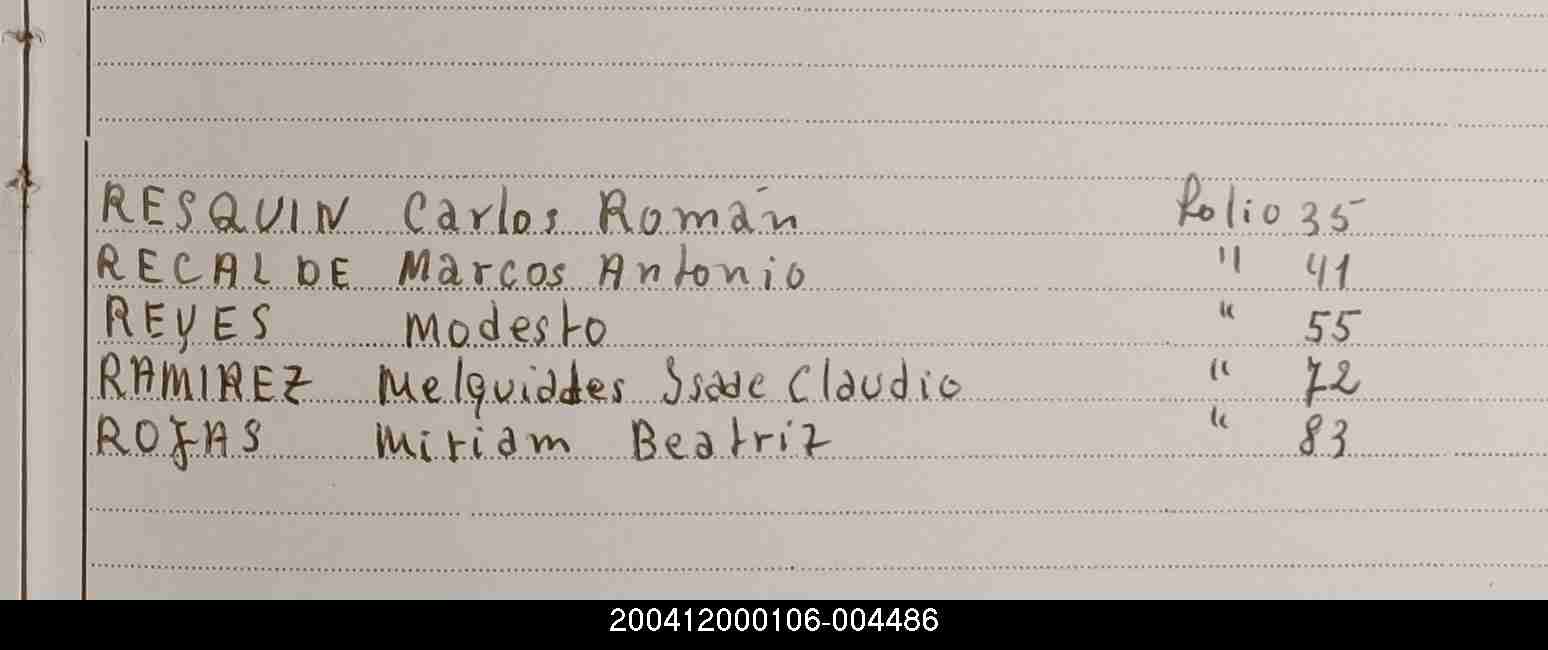 RESQUIN Carlos Román Folio 35
RECALDE Marcos Antonio " 41
REYES Modesto " 55
RAMIREZ Melquiades Isaac Claudio " 72
ROJAS Miriam Beatriz " 83
200412000106-004486